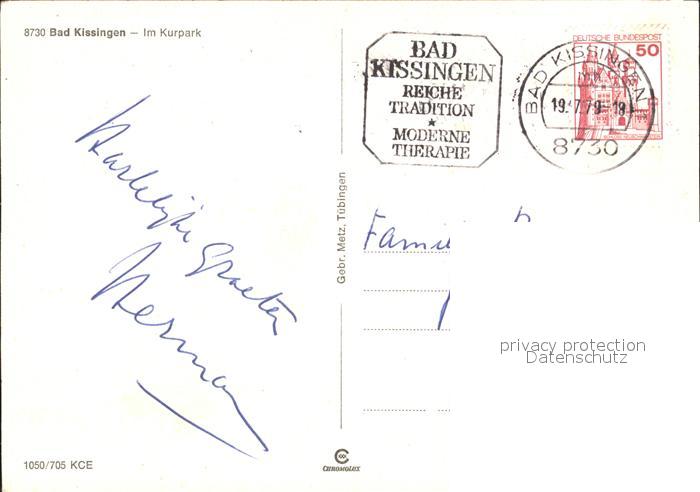 8730 Bad Kissingen – Im Kurpark
BAD
KISSINGEN
REICHE
TRADITION
★
MODERNE
THERAPIE
DEUTSCHE BUNDESPOST
50
BAD KISSINGEN
19.-7.79-18
8730
Gebr. Metz, Tübingen
Hartelijke
Groeten
Herman
Fami
privacy protection
Datenschutz
1050/705 KCE
CHROMOLUX